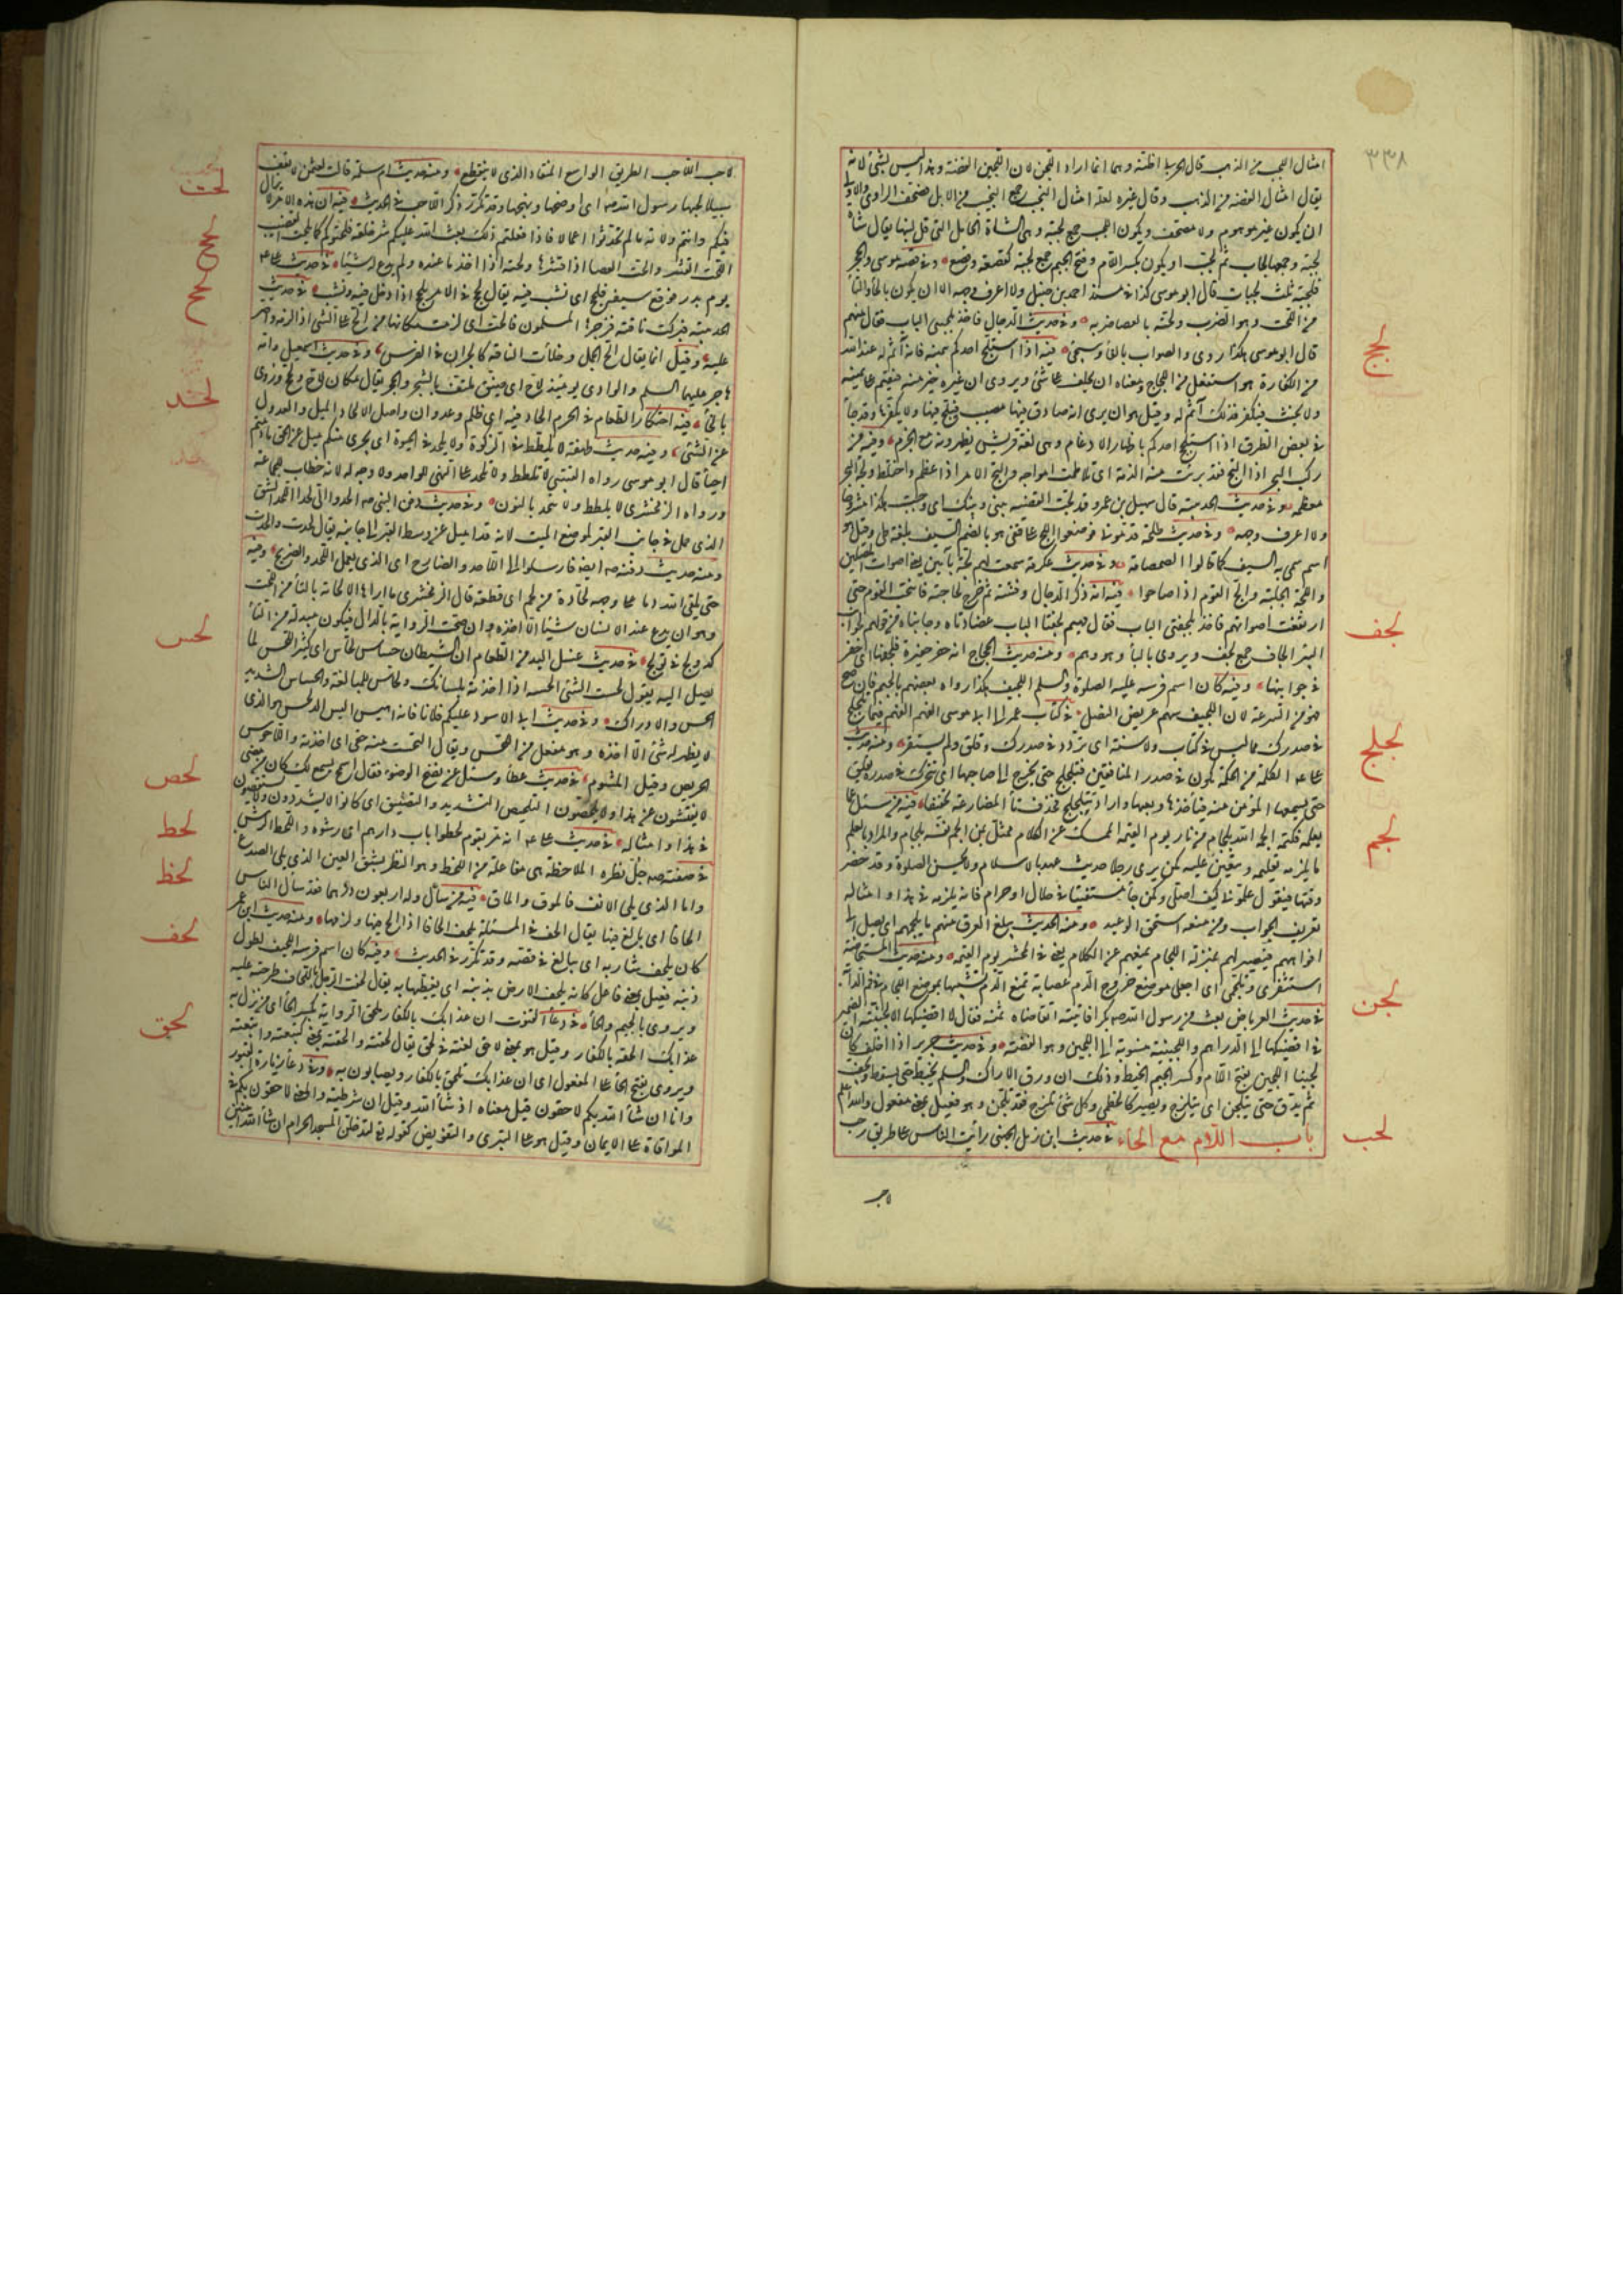 ٣٣٨
امثال اللجب من الذهب قال الحربى اظنه وهما انما اراد اللجن لان اللجين الفضة وهذا ليس بشئ لانه
يقال امثال الفضة من الذهب وقال غيره لعله امثال النجب جمع النجيب من الابل فصحف الراوى والاولى
ان يكون غير موهوم ولا مصحف ويكون اللجب جمع لجبة وهى الشاة الحايل التى قل لبنها يقال شاة
لجبة وجمعها لجاب ثم لجب او يكون بكسر اللام وفتح الجيم جمع لجبة كقصعة وقصع وفى قصة موسى والحجر
فلجبه ثلث لجبات قال ابو موسى كذا فى مسند احمد بن حنبل ولا اعرف وجهه الا ان يكون بالحاء والتاء
من اللحت وهو الضرب ولحته بالعصا ضربه وفى حديث الدجال فاخذ بلجبتى الباب فقال مهيم
لجج
قال ابو موسى هكذا روى والصواب بالفاء وسيجئ فيه اذا استلج احدكم بيمينه فانه آثم له عند الله
من الكفارة هو استفعل من اللجاج ومعناه ان يحلف على شئ ويرى ان غيره خير منه فيقيم على يمينه
ولا يحنث فيكفر فذلك آثم له وقيل هو ان يرى انه صادق فيها مصيب فيلج فيها ولا يكفرها وقد جاء
فى بعض الطرق اذا استلجج احدكم باظهار الادغام وهى لغة قريش يظهرونه مع الجزم وفيه من
ركب البحر اذا التج فقد برئت منه الذمة اى تلاطمت امواجه والتج الامر اذا عظم واختلط ولجة البحر
معظمه وفى حديث الحديبية قال سهيل بن عمرو قد لجت القضية بينى وبينك اى وجبت هكذا مشروحا
ولا اعرف وجهه وفى حديث طلحة قدمونى فوضعوا اللج على قفى هو بالضم السيف بلغة طى وقيل هو
اسم سمى به السيف كما قالوا الصمصامة وفى حديث عكرمة سمعت لهم لجة بآمين يعنى اصوات المصلين
واللجة الجلبة والج القوم اذا صاحوا فيه انه ذكر الدجال وفتنته ثم خرج لحاجته فانتحب القوم حتى
لجف
ارتفعت اصواتهم فاخذ بلجفتى الباب فقال مهيم لجفتا الباب عضادتاه وجانباه من قولهم لجوانب
البئر الجاف جمع لجف ويروى بالباء وهو وهم ومنه حديث الحجاج انه حفر حفيرة فلجفها اى حفر
فى جوانبها وفيه كان اسم فرسه عليه الصلوة والسلم اللجيف هكذا رواه بعضهم بالجيم فان صح
لجلج
فهو من السرعة لان اللجيف سهم عريض النصل فى كتاب عمر الى ابى موسى الفهم الفهم فيما تلجلج
فى صدرك مما ليس فى كتاب ولا سنة اى تردد فى صدرك وقلق ولم يستقر ومنه حديث
على الكلمة من الحكمة تكون فى صدر المنافقين فتلجلج حتى تخرج الى صاحبها اى تتحرك فى صدره وتقلق
حتى يسمعها المؤمن منه فيأخذها ويعيها واراد تتلجلج فحذف تاء المضارعة تخفيفا فيه من سئل عما
لجم
يعلمه فكتمه الجمه الله بلجام من نار يوم القيمة الممسك عن الكلام ممثل بمن الجم نفسه بلجام والمراد بالعلم
ما يلزمه تعليمه ويتعين عليه كمن يرى رجلا حديث عهد بالاسلام ولا يحسن الصلوة وقد حضر
وقتها فيقول علمونى كيف اصلى وكمن جاء مستفتيا فى حلال او حرام فانه يلزمه فى هذا وامثاله
تعريف الجواب ومن منعه استحق الوعيد ومنه الحديث يبلغ العرق منهم ما يلجمهم اى يصل الى
افواههم فيصير لهم بمنزلة اللجام يمنعهم عن الكلام يعنى فى المحشر يوم القيمة ومنه حديث المستحاضة
استثفرى وتلجمى اى اجعلى موضع خروج الدم عصابة تمنع الدم تشبيها بوضع اللجام فى فم الدابة
لجن
فى حديث العرباض بعث من رسول الله صم بكرا فاتيته اتقاضاه ثمنه فقال لا اقضيكها الا لجينية الضمير
فى اقضيكها الى الدراهم واللجينية منسوبة الى اللجين وهو الفضة وفى حديث جرير اذا اخلف كان
لجينا اللجين بفتح اللام وكسر الجيم الخبط وذلك ان ورق الاراك والسلم يخبط حتى يسقط ويجف
ثم يدق حتى يتلجن اى يتلزج ويصير كالخطمى وكل شئ تلزج فقد تلجن وهو فعيل بمعنى مفعول والله اعلم
لحب
باب اللام مع الحاء فى حديث ابن زمل الجهنى رأيت الناس على طريق رحب
لاحب
لاحب اللاحب الطريق الواسع المنقاد الذى لا ينقطع ومنه حديث ام سلمة قالت لعثمن لا تعف
لحت
سبيلا لحبها رسول الله صم اى اوضحها ونهجها وقد تكرر ذكر اللاحب فى الحديث فيه ان هذا الامر لا يزال
فيكم وانتم ولاته ما لم تحدثوا اعمالا فاذا فعلتم ذلك بعث الله عليكم شر خلقه فلحتوكم كما يلحت القضيب
لحج
اللحت القشر ولحت العصا اذا قشرها ولحته اذا اخذ ما عنده ولم يدع له شيئا فى حديث على
يوم بدر فوقع سيفه فلحج اى نشب فيه يقال لحج فى الامر يلحج اذا دخل فيه ونشب فى حديث
لحح
الحديبية فبركت ناقته فزجرها المسلمون فالحت اى لزمت مكانها من الح على الشئ اذا لزمه واصر
عليه وقيل انما يقال الح الجمل وخلأت الناقة كالحران فى الفرس وفى حديث اسمعيل وامه
هاجر عليهما السلم والوادى يومئذ لاح اى ضيق ملتف بالشجر والحجر يقال مكان لاح ولحح وروى
لحد
بالخاء فيه احتكار الطعام فى الحرم الحاد فيه اى ظلم وعدوان واصل الالحاد الميل والعدول
عن الشئ وفيه حديث طهفة لا يلطط فى الزكوة ولا يلحد فى الحيوة اى يجرى منكم ميل عن الحق ما دمتم
احياء قال ابو موسى رواه القتيبى لا تلطط ولا تلحد على النهى للواحد ولا وجه له لانه خطاب للجماعة
ورواه الزمخشرى لا نلطط ولا نلحد بالنون وفى حديث دفن النبى صم الحدوا لى لحدا اللحد الشق
الذى يعمل فى جانب القبر لموضع الميت لانه قد اميل عن وسط القبر الى جانبه يقال لحدت والحدت
ومنه حديث دفنه صم ايضا فارسلوا الى اللاحد والضارح اى الذى يعمل اللحد والضريح وفيه
حتى يلقى الله وما على وجهه لحادة من لحم اى قطعة قال الزمخشرى ما اراها الا لحاتة بالتاء من اللحت
وهو ان يدع عند الانسان شيئا الا اخذه وان صحت الرواية بالدال فيكون مبدلة من التاء
لحس
كدولج فى تولج فى حديث غسل اليد من الطعام ان الشيطان حساس لحاس اى كثير اللحس لما
يصل اليه يقول لحست الشئ الحسه اذا اخذته بلسانك ولحاس للمبالغة والحساس الشديد
الحس والادراك وفى حديث ابى الاسود عليكم فلانا فانه اهيس اليس الد ملحس هو الذى
لا يظهر له شئ الا اخذه وهو مفعل من اللحس ويقال التحست منه حقى اى اخذته واللاحوس
لحص
الحريص وقيل المشئوم فى حديث عطاء وسئل عن نضح الوضوء فقال اسمح يسمح لك كان من مضى
لا يفتشون عن هذا ولا يلحصون التلحيص التشديد والتضييق اى كانوا لا يشددون ولا يستقصون
لحط
فى هذا وامثاله فى حديث على انه مر بقوم لحطوا باب دارهم اى رشوه واللحط الرش
لحظ
فى صفته صم جل نظره الملاحظة هى مفاعلة من اللحظ وهو النظر بشق العين الذى يلى الصدغ
واما الذى يلى الانف فالموق والماق فيه من سأل وله اربعون درهما فقد سأل الناس
لحف
الحافا اى بالغ فيها يقال الحف فى المسئلة يلحف الحافا اذا الح فيها ولزمها ومنه حديث ابن عمر
كان يلحف شاربه اى يبالغ فى قصه وقد تكرر فى الحديث وفيه كان اسم فرسه اللحيف لطول
ذنبه فعيل بمعنى فاعل كانه يلحف الارض بذنبه اى يغطيها به يقال لحفت الرجل باللحاف طرحته عليه
لحق
ويروى بالجيم والخاء فى دعاء القنوت ان عذابك بالكفار ملحق الرواية بكسر الحاء اى من نزل به
عذابك الحقه بالكفار وقيل هو بمعنى لاحق لغة فى لحق يقال لحقته والحقته بمعنى كتبعته واتبعته
ويروى بفتح الحاء على المفعول اى ان عذابك ملحق بالكفار ويصابون به وفى دعاء زيارة القبور
وانا ان شاء الله بكم لاحقون قيل معناه اذ شاء الله وقيل ان شرطية والمعنى لاحقون بكم فى
الموافاة على الايمان وقيل هو على التبرى والتفويض كقوله تع لتدخلن المسجد الحرام ان شاء الله آمنين